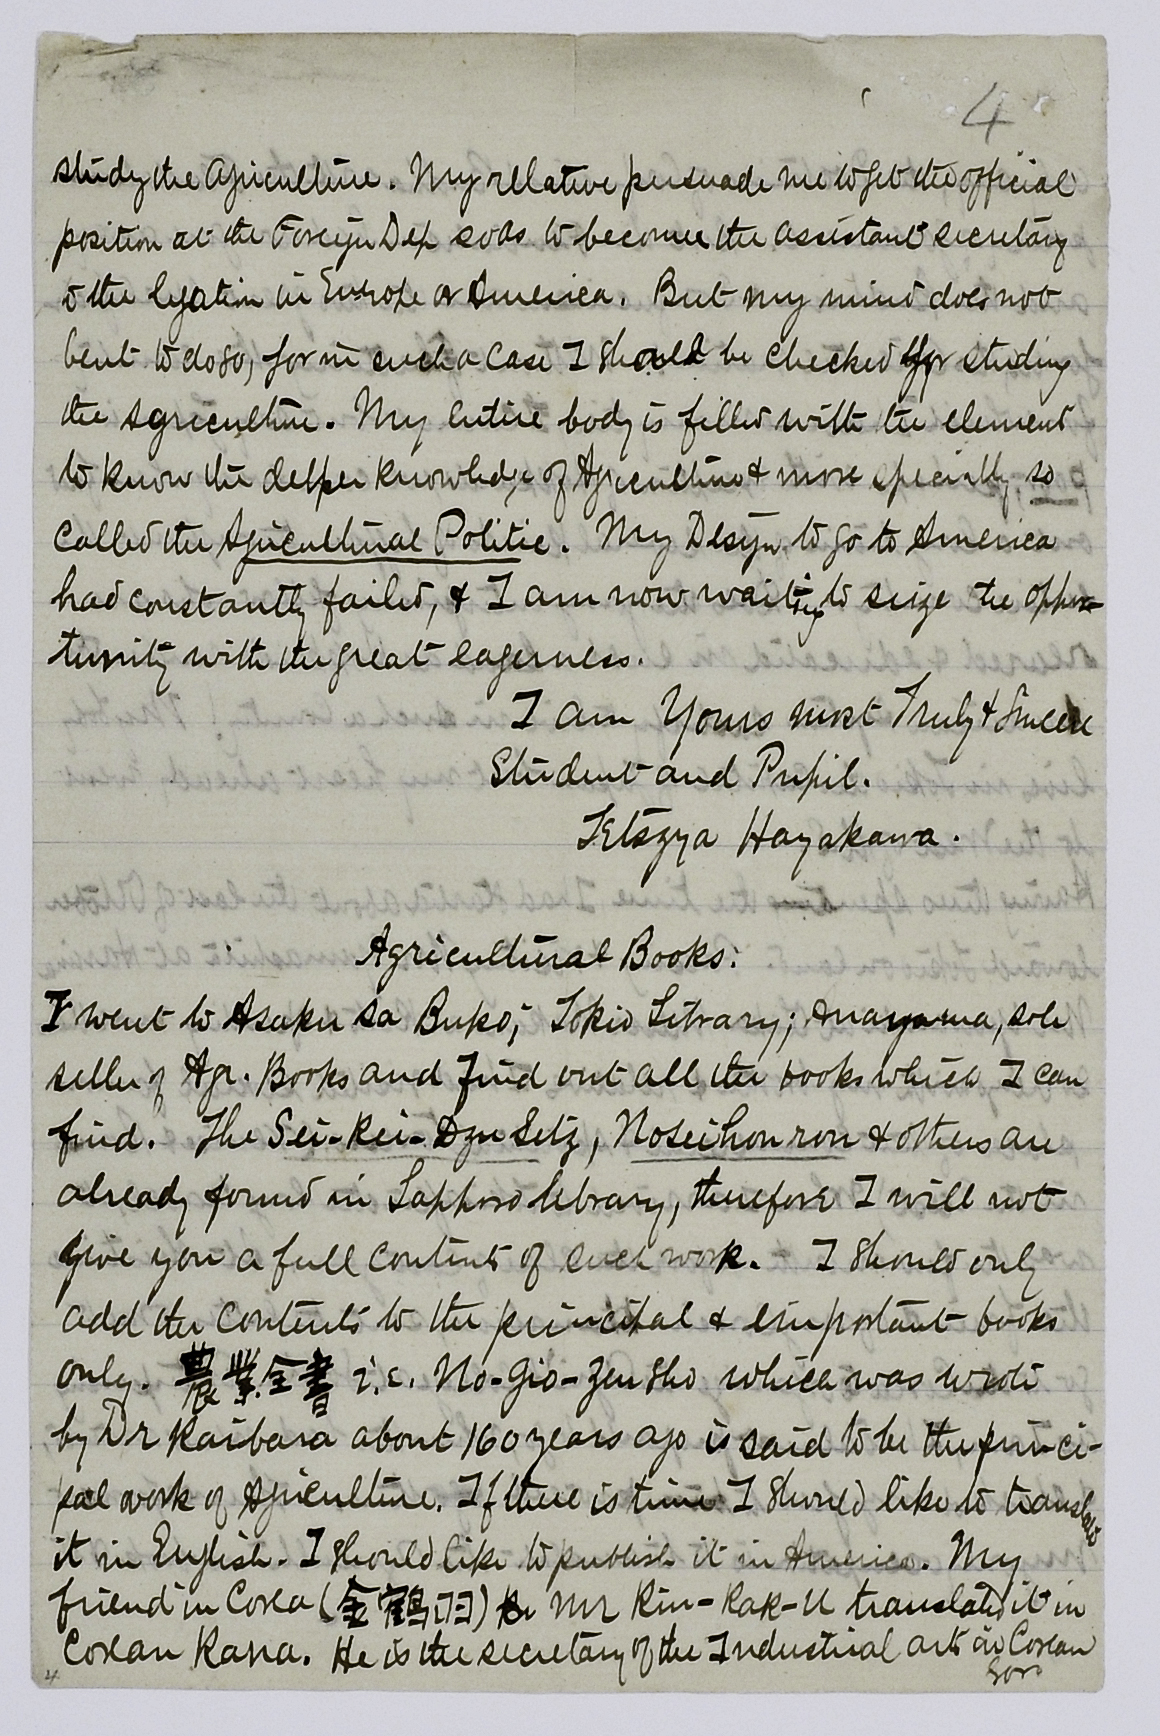 4
study the agriculture. My rellative persuade me to get the official
position at the Foreign Dep so as to become the assistant secretary
to the legation in Europe or America. But my mind does not
bent to do so, for in such a case I should be checked for studing
the agriculture. My entire body is filled with the element
to know the deeper knowledge of Agriculture & more specially, so
called the Agricultural Politic. My Design to go to America
had constantly failed, & I am now waiting to seize the oppor-
tunity with the great eagerness.
I am Yours most Truly & Sincere
Student and Pupil.
Tetszya Hayakawa.
Agricultural Books:
I went to Asaku sa Buko; Tokio Library; Anayama, sole
seller of Agr. Books and find out all the books which I can
find. The Sei-Kei-Dzu Setz, Noseihon ron & others are
already found in Sapporo library, therefore I will not
give you a full contents of each work. - I should only
add the contents to the principal & important books
only. 農業全書 i.e. No-Gio-Zen Sho which was wrote
by Dr Kaibara about 160 years ago is said to be the princi-
pal work of Agriculture. If there is time I should like to translate
it in English. I should like to publish it in America. My
friend in Corea (金鶴羽) Mr Kin-Kak-U translated it in
Corean Kana. He is the secretary of the Industrial arts in Corean
Gov.
4